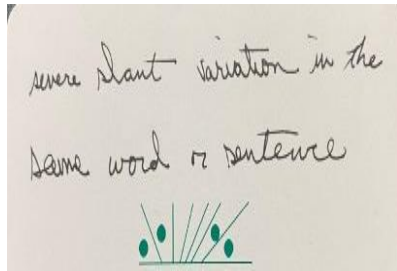 severe slant variation in the
same word or sentence